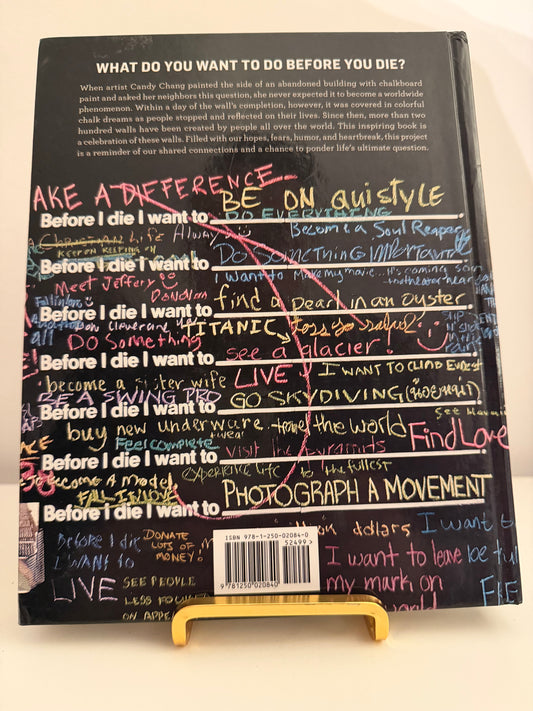 WHAT DO YOU WANT TO DO BEFORE YOU DIE?
When artist Candy Chang painted the side of an abandoned building with chalkboard
paint and asked her neighbors this question, she never expected it to become a worldwide
phenomenon. Within a day of the wall's completion, however, it was covered in colorful
chalk dreams as people stopped and reflected on their lives. Since then, more than two
hundred walls have been created by people all over the world. This inspiring book is
a celebration of these walls. Filled with our hopes, fears, humor, and heartbreak, this project
is a reminder of our shared connections and a chance to ponder life's ultimate question.
AKE A DIFFERENCE
BE ON quistyle
Before I die I want to
DO EVERYTHING
CHRISTIAN Life
Always
Become a Soul Reaper
KEEP ON KEEPING ON
Before I die I want to
DO SOMETHING IMPORTANT
I want to make my movie... it's coming soon
Meet Jeffery
Fall in love
Before I die I want to
find a pearl in an oyster
all
DO Something
TITANIC
Before I die I want to
see a glacier!
become a sister wife
LIVE
I WANT TO CLIMB EVEREST
BE A SWING PRO
GO SKYDIVING
Before I die I want to
buy new underware
travel the world
See Hawaii
Feel complete
visit the pyramids
Find Love
Before I die I want to
experience life to the fullest
become A Model
FALL IN LOVE
Before I die I want to
PHOTOGRAPH A MOVEMENT
Before I die
I WANT TO
LIVE
DONATE
LOTS OF
MONEY!
SEE PEOPLE
LESS FOCUSED
ON
ISBN 978-1-250-02084-0
52499>
9 781250 020840
dollars
I want to leave
my mark on
world
I want
be